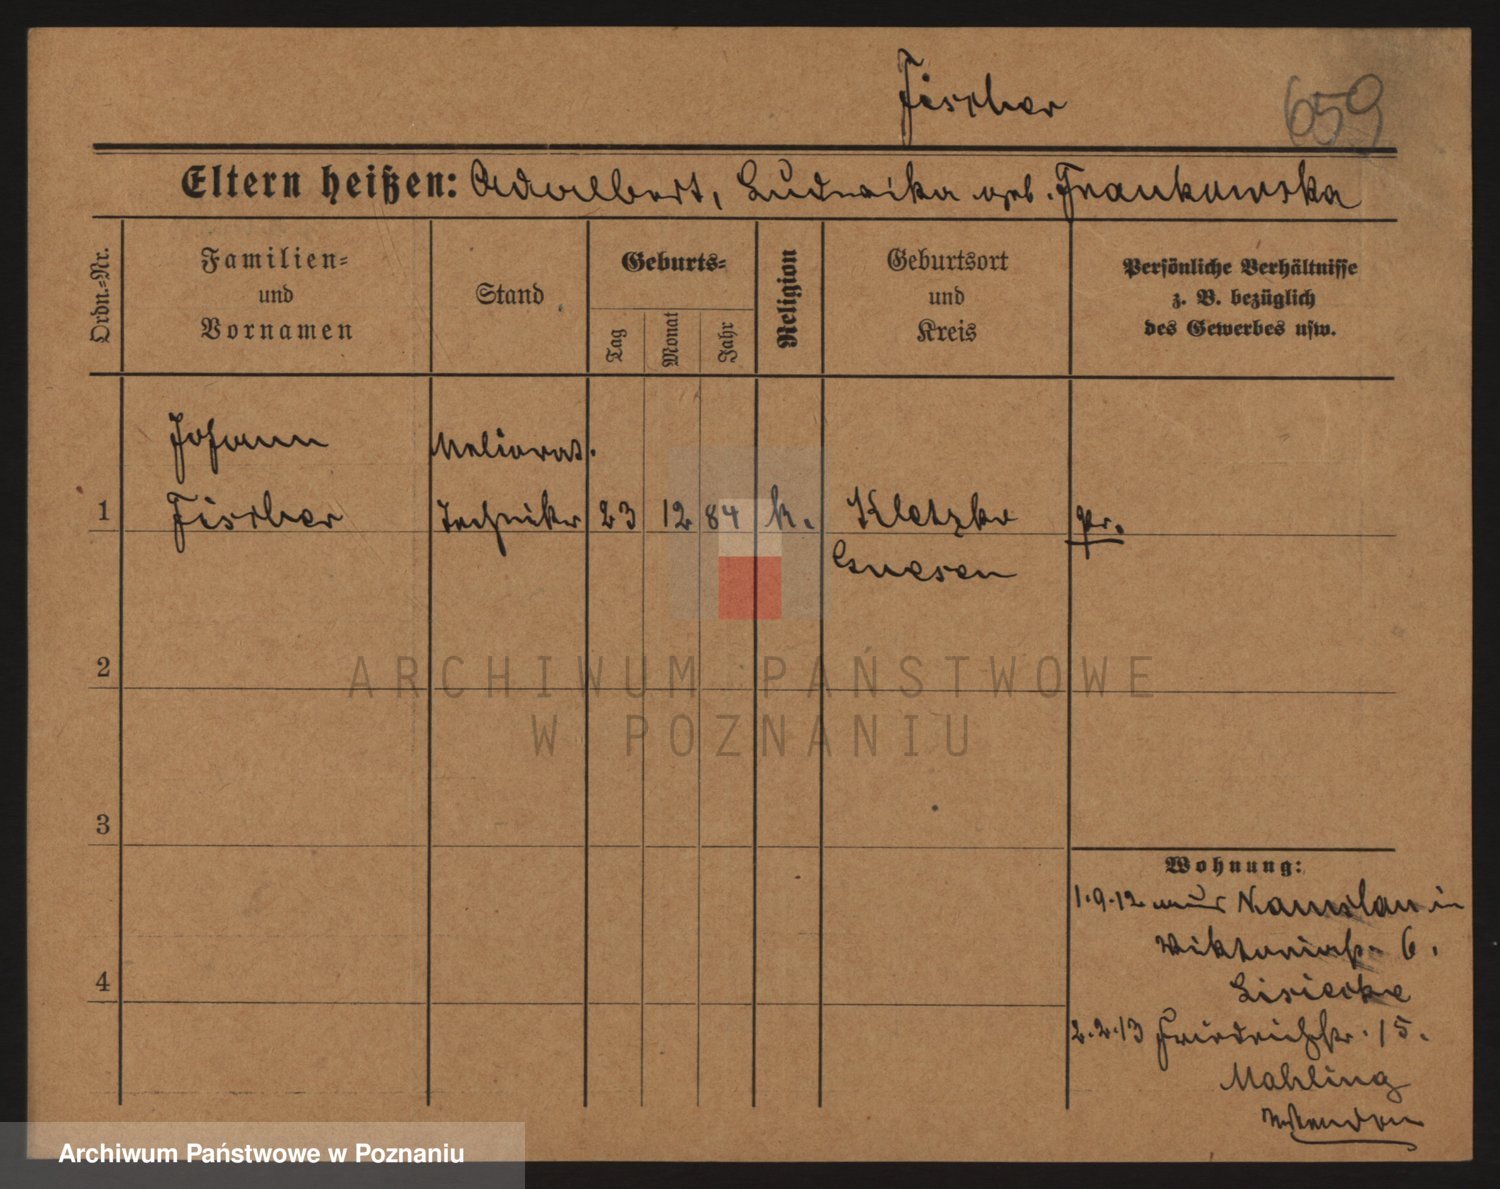 Fischer
659
Eltern heißen: Adalbert, Ludwika geb. Frankowska
Ordn.-Nr.
Familien-
und
Vornamen
Stand
Geburts-
Tag
Monat
Jahr
Religion
Geburtsort
und
Kreis
Persönliche Verhältnisse
z. B. bezüglich
des Gewerbes usw.
Johann
Meliorat.
1 Fischer Techniker 23 12 84 k. Kletzko pr.
Gnesen
2
ARCHIWUM PAŃSTWOWE
W POZNANIU
3
Wohnung:
1.9.12 Namslau in
Viktoriastr. 6.
Lisiecke
4
2.2.13 Friedrichstr. 15.
Mahling
Archiwum Państwowe w Poznaniu